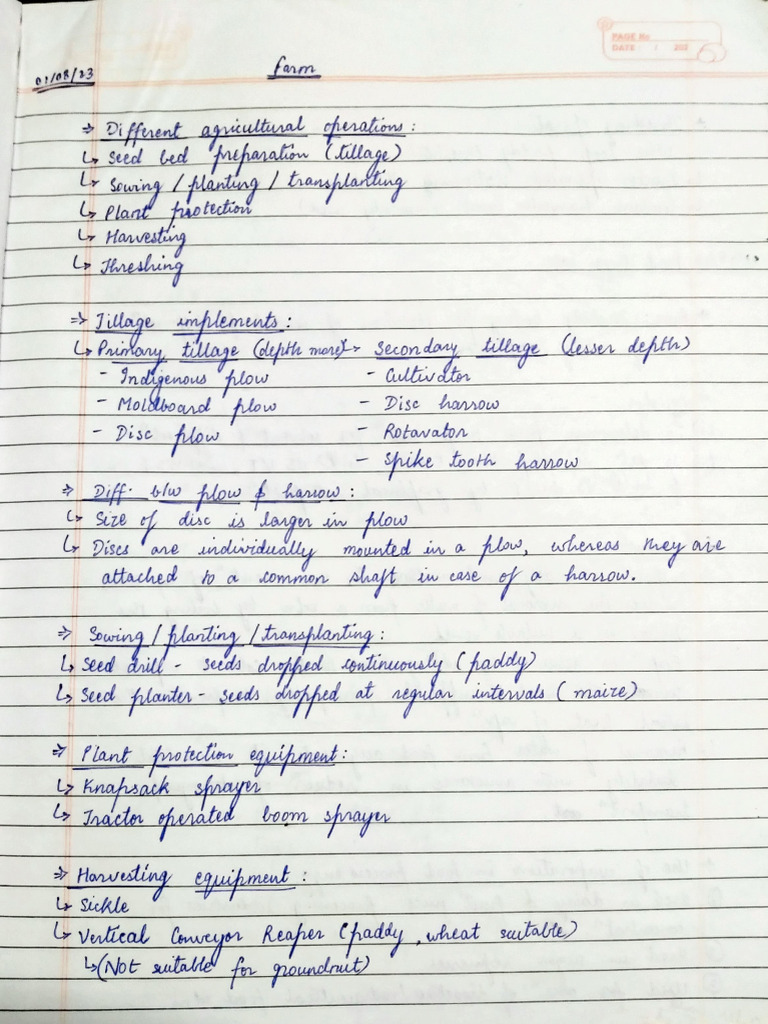 PAGE No
DATE : : 202
01/08/23
Farm
⇒ Different agricultural operations:
↳ Seed bed preparation (tillage)
↳ Sowing / planting / transplanting
↳ Plant protection
↳ Harvesting
↳ Threshing
⇒ Tillage implements:
↳ Primary tillage (depth more) → Secondary tillage (lesser depth)
- Indigenous plow - Cultivator
- Moldboard plow - Disc harrow
- Disc plow - Rotavator
- Spike tooth harrow
⇒ Diff. b/w plow & harrow:
↳ Size of disc is larger in plow
↳ Discs are individually mounted in a plow, whereas they are
attached to a common shaft in case of a harrow.
⇒ Sowing / planting / transplanting:
↳ Seed drill - seeds dropped continuously (paddy)
↳ Seed planter - seeds dropped at regular intervals (maize)
⇒ Plant protection equipment:
↳ Knapsack sprayer
↳ Tractor operated boom sprayer
⇒ Harvesting equipment:
↳ Sickle
↳ Vertical Conveyor Reaper (paddy, wheat suitable)
↳ (Not suitable for groundnut)